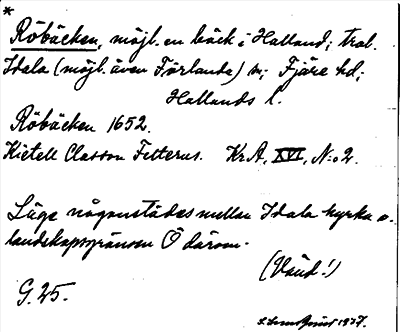 *
Röbäcken, möjl. en bäck i Halland; trol.
Idala (möjl. även Förlanda) sn; Fjäre hd;
Hallands l.
Röbäcken 1652.
Kietell Classon Felterus. KrA, XVI, N:o 2.
Låge någonstädes mellan Idala kyrka o.
landskapsgränsen Ö därom.
(Vänd!)
G. 25.
1937.